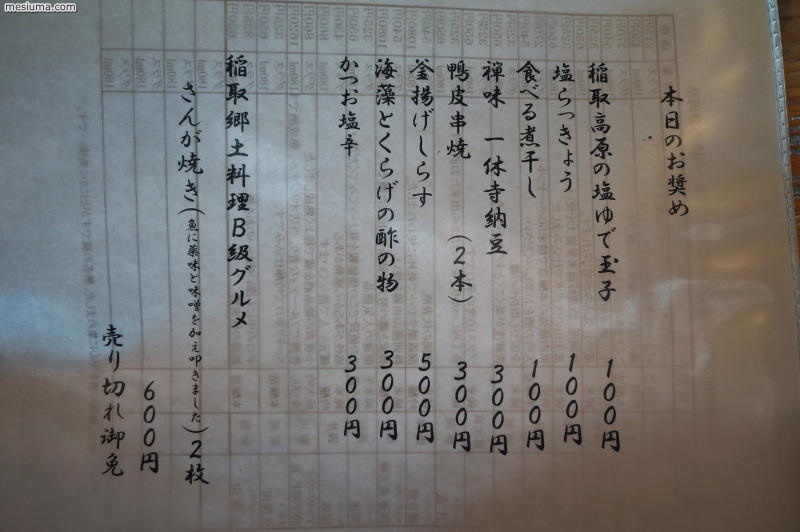 mesiuma.com
本日のお奨め
稲取高原の塩ゆで玉子 100円
塩らっきょう 100円
食べる煮干し 100円
禅味 一休寺納豆 300円
鴨皮串焼 (2本) 300円
釜揚げしらす 500円
海藻とくらげの酢の物 300円
かつお塩辛 300円
稲取郷土料理B級グルメ
さんが焼き(魚に薬味と味噌を加え叩きました)2枚
600円
売り切れ御免
mesiuma.com